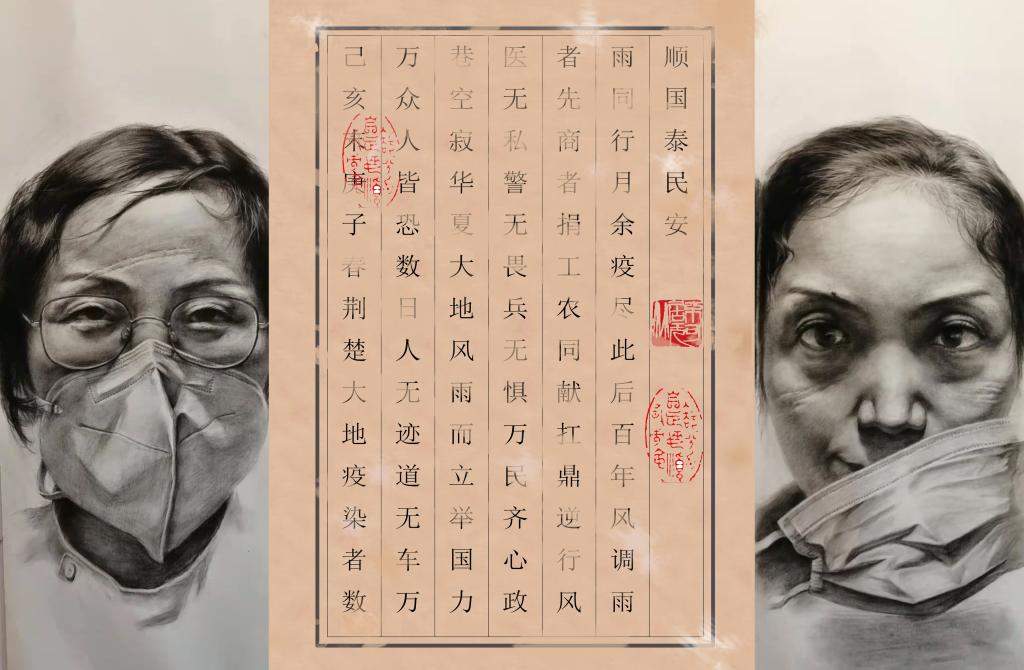 己亥末庚子春荆楚大地疫染者数
万众人皆恐数日人无迹道无车万
巷空寂华夏大地风雨而立举国力
医无私警无畏兵无惧万民齐心政
者先商者捐工农同献扛鼎逆行风
雨同行月余疫尽此后百年风调雨
顺国泰民安